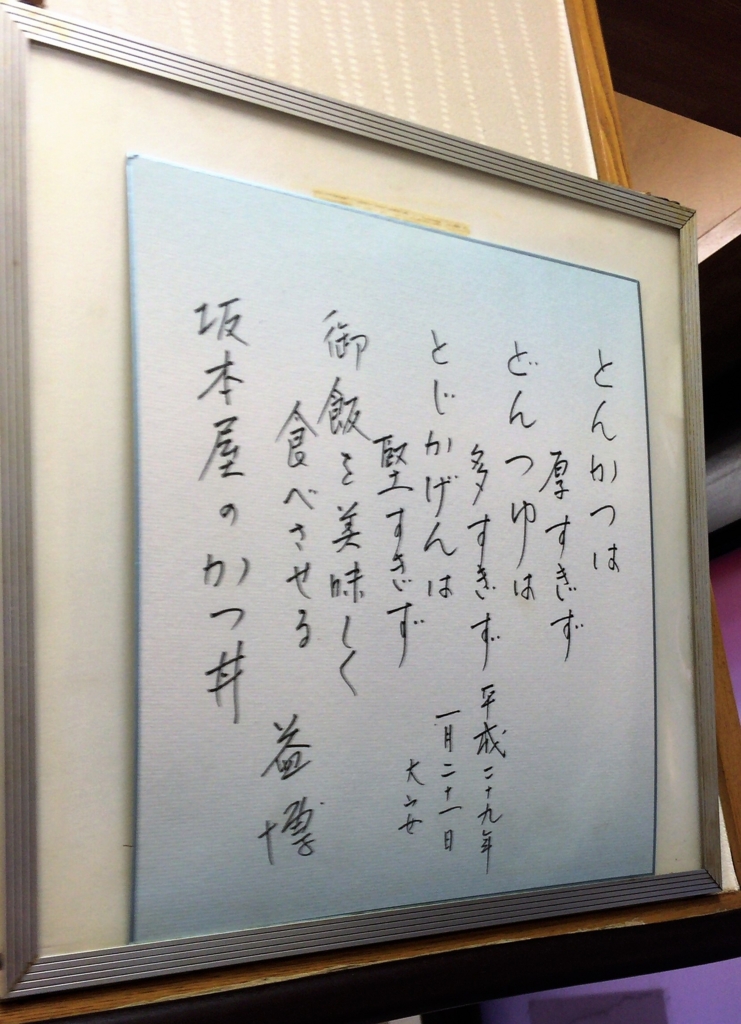 とんかつは
厚すぎず
どんつゆは
多すぎず
とじかげんは
堅すぎず
御飯を美味しく
食べさせる
坂本屋のかつ丼
平成二十九年
一月二十一日
大安
益博